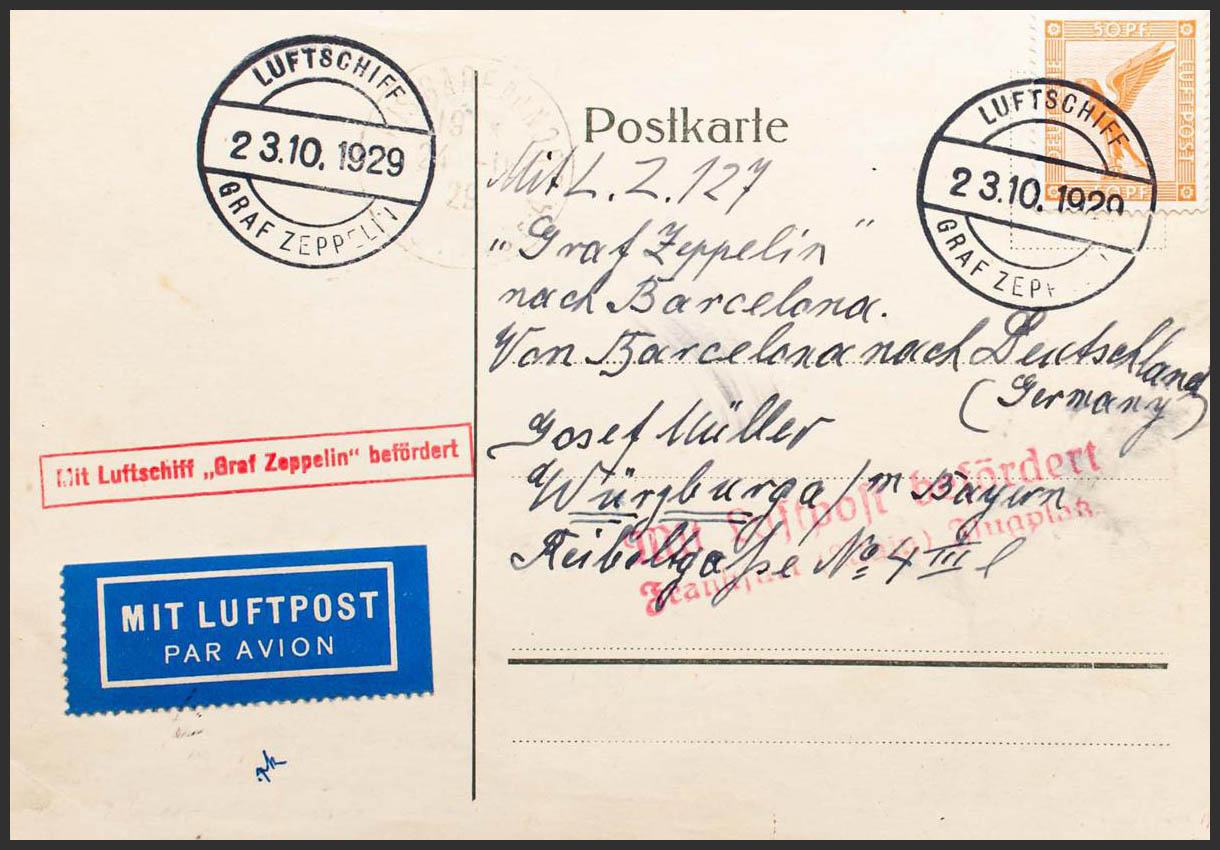 LUFTSCHIFF
23.10. 1929
GRAF ZEPPELIN
50 PF.
LUFTPOST
50 PF.
LUFTSCHIFF
23.10. 1929
GRAF ZEPP
Postkarte
Mit L. Z. 127
„Graf Zeppelin"
nach Barcelona.
Von Barcelona nach Deutschland
(Germany)
Josef Müller
Würzburg a/m Bayern
No 4 III l
Mit Luftschiff „Graf Zeppelin“ befördert
Mit Luftpost befördert
Flugplatz.
MIT LUFTPOST
PAR AVION